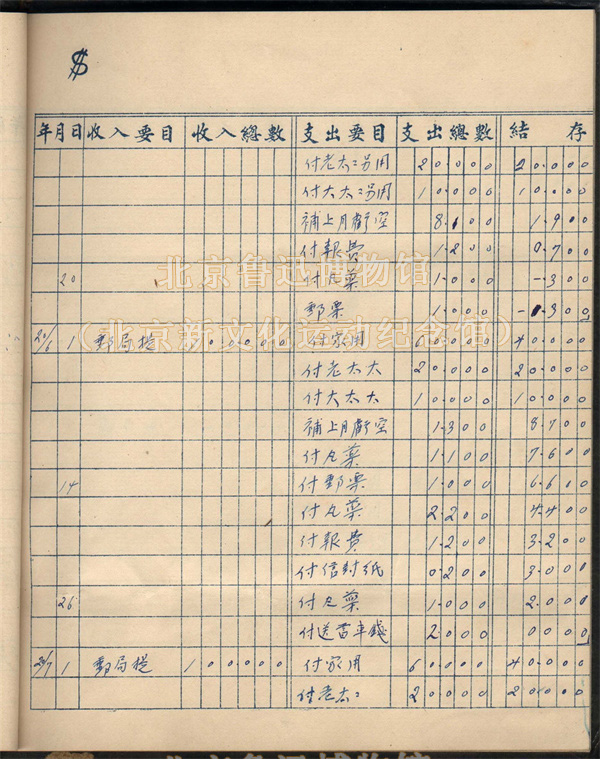 $
年 月 日 收入要目 收入總數 支出要目 支出總數 結存
付老太〻另用 20.000 20.000
付大太〻另用 10.000 10.000
補上月虧空 8.100 1.900
付報費 1.200 0.700
20 付丸藥 1.000 -.300
郵票 1.000 -1.300
20/6 1 郵局提 100.000 付家用 60.000 40.000
付老太太 20.000 20.000
付大太太 10.000 10.000
補上月虧空 1.300 8.700
付丸藥 1.100 7.600
14 付郵票 1.000 6.600
付丸藥 2.200 4.400
付報費 1.200 3.200
付信封紙 0.200 3.000
26 付丸藥 1.000 2.000
付送 車錢 2.000 0000
20/7 1 郵局提 100.000 付家用 60.000 40.000
付老太〻 20.000 20.000
北京鲁迅博物馆
（北京新文化运动纪念馆）
北京鲁迅博物馆